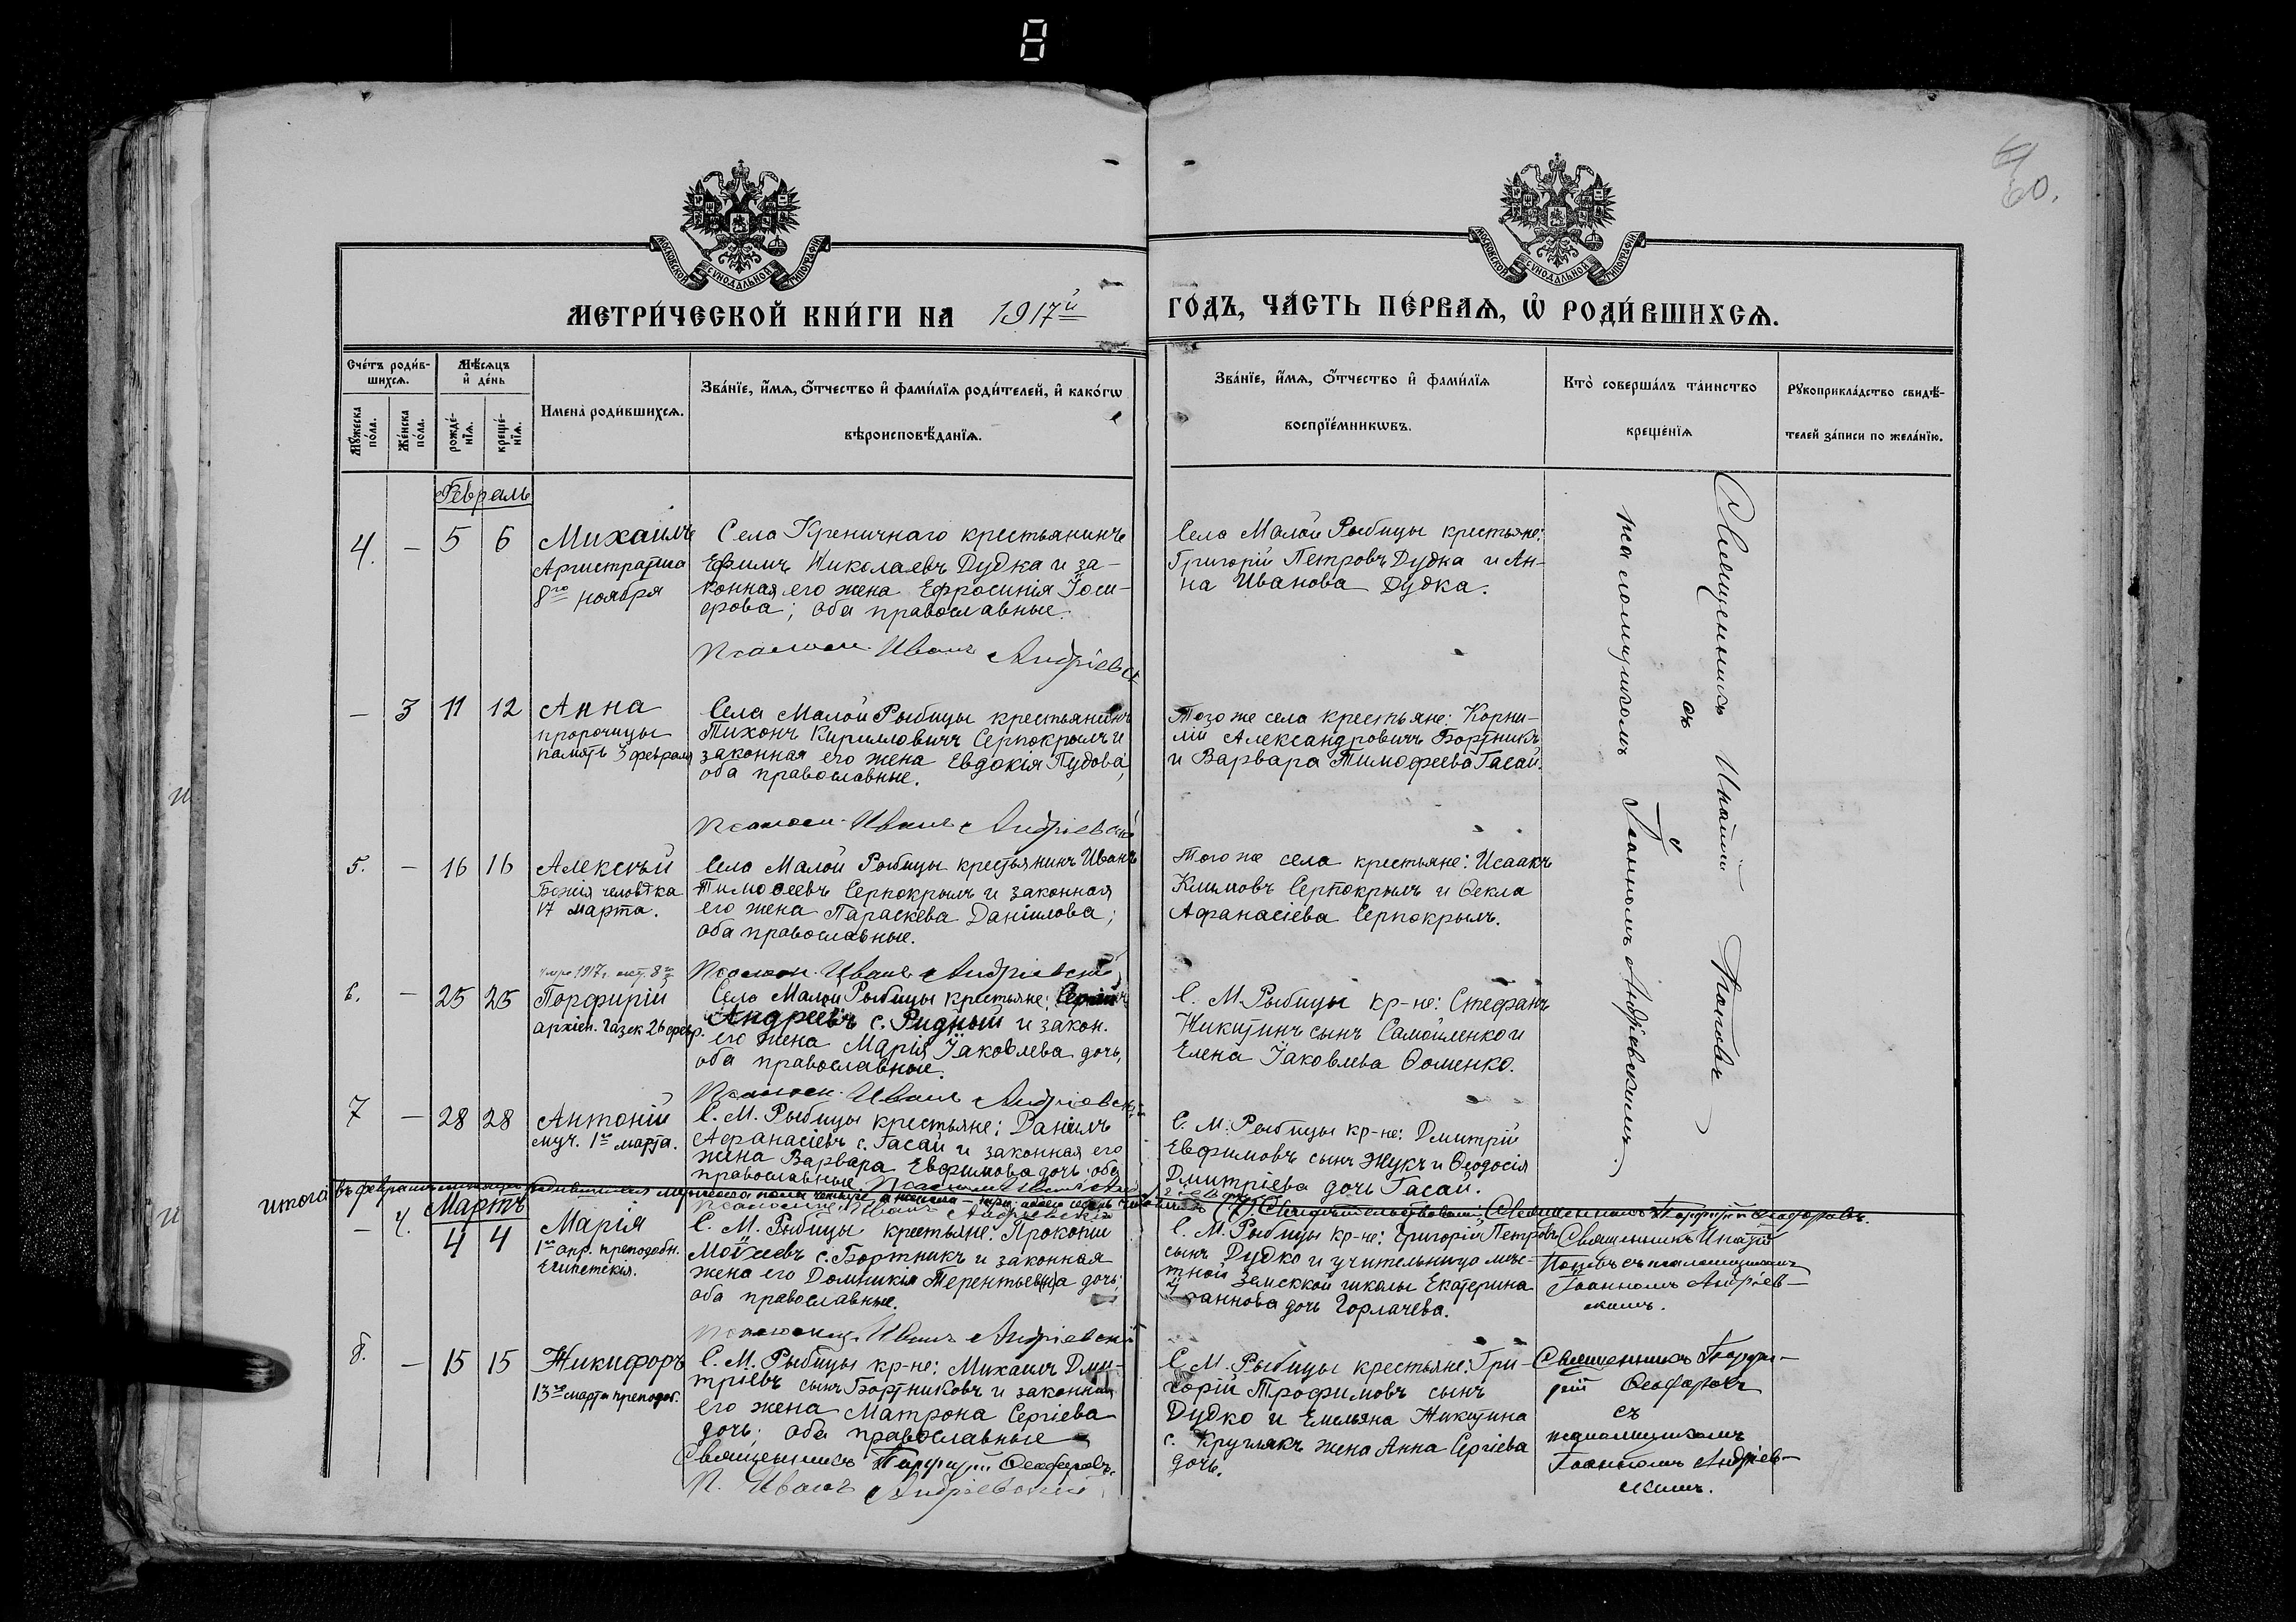 8
60.
МОСКОВСКОЙ СѴНОДАЛЬНОЙ ТИПОГРАФІИ
МОСКОВСКОЙ СѴНОДАЛЬНОЙ ТИПОГРАФІИ
МЕТРИ́ЧЕСКОЙ КНИ́ГИ НА 1917й
ГО́ДЪ, ЧА́СТЬ ПЕ́РВАѦ, Ѽ РОДИ́ВШИХСѦ.
Сче́тъ роди́в-
шихсѧ.
Мꙋ́жеска по́ла.
Же́нска по́ла.
Мѣ́сѧцъ и҆ де́нь
рожде́-
нїѧ.
креще́-
нїѧ.
И҆мена̀ роди́вшихсѧ.
Зва́нїе, и҆́мѧ, ѻ҆́тчество и҆ фами́лїѧ роди́телей, и҆ како́гѡ
вѣроисповѣ́данїѧ.
Зва́нїе, и҆́мѧ, ѻ҆́тчество и҆ фами́лїѧ
воспрїе́мникѡвъ.
Кто̀ соверша́лъ та́инство
креще́нїѧ
Рꙋкоприкла́дство свидѣ́-
телей за́писи по жела́нїю.
Февраль
4. — 5 6
Михаилъ
Архистратига
8го ноября
Села Креничнаго крестьянинъ
Ефимъ Николаевъ Дудка и за-
конная его жена Ефросинія Іоси-
фова; оба православные.
Псалом. Иванъ Андріевск
Села Малой Рыбицы крестьяне:
Григорій Петровъ Дудка и Ан-
на Иванова Дудка.
Священникъ Игнатій Поповъ
съ
псаломщикомъ Іоанномъ Андріевскимъ.
— 3 11 12
Анна
пророчицы
память 3 февраля
Села Малой Рыбицы крестьянинъ
Тихонъ Кирилловичъ Серпокрылъ и
законная его жена Евдокія Пудова,
оба православные.
Псалом. Иванъ Андріевскій
Того же села крестьяне: Корни-
лій Александровичъ Бортникъ
и Варвара Тимофеева Гасай.
5. — 16 16
Алексѣй
Божія человѣка
17 марта.
Села Малой Рыбицы крестьянинъ Иванъ
Тимоѳеевъ Серпокрылъ и законная
его жена Параскева Даніилова;
оба православные.
Псалом. Иванъ Андріевскій
Того же села крестьяне: Исаакъ
Климовъ Серпокрылъ и Ѳекла
Афанасіева Серпокрылъ.
6. — 25 25
Порфирій
архіеп. Газск 26 февр.
Села Малой Рыбицы крестьяне:
Андреевъ с. Ридный и закон.
его жена Марія Іаковлева дочь,
оба православные.
Псалом. Иванъ Андріевскій
С. М. Рыбицы кр-не: Стефанъ
Никитинъ сынъ Самойленко и
Елена Іаковлева Ѳоменко.
7 — 28 28
Антоній
муч. 1го марта.
С. М. Рыбицы крестьяне: Даніилъ
Афанасіевъ с. Гасай и законная его
жена Варвара Евфимова дочь: оба
православные.
С. М. Рыбицы кр-не: Дмитрій
Евфимовъ сынъ Жукъ и Ѳеодосія
Дмитріева дочь Гасай.
итого въ февралѣ
(7) Свидѣтельствовали: Священникъ Порфирій Ѳеодоровъ.
Мартъ
— 4. 4 4
Марія
1го апр. преподобн.
Египетскія.
С. М. Рыбицы крестьяне: Прокопій
Моѵсеевъ с. Бортникъ и законная
жена его Домникія Терентьевна дочь;
оба православные.
Псаломщ. Иванъ Андріевскій
С. М. Рыбицы кр-не: Григорій Петровъ
сынъ Дудко и учительница мѣс-
тной земской школы Екатерина
Іоаннова дочь Горлачева.
Священникъ Игнатій
Поповъ съ псаломщикомъ
Іоанномъ Андріев-
скимъ.
8. — 15 15
Никифоръ
13го марта преподоб.
С. М. Рыбицы кр-не: Михаилъ Дми-
тріевъ сынъ Бортниковъ и законная
его жена Матрона Сергіева
дочь: оба православные
Священникъ Порфирій Ѳеодоровъ.
П. Иванъ Андріевскій
С. М. Рыбицы крестьяне: Гри-
горій Трофимовъ сынъ
Дудко и Емельяна Никитина
с. Круглякъ жена Анна Сергіева
дочь.
Священникъ Порфи-
рій Ѳеодоровъ
съ
псаломщикомъ
Іоанномъ Андріев-
скимъ.